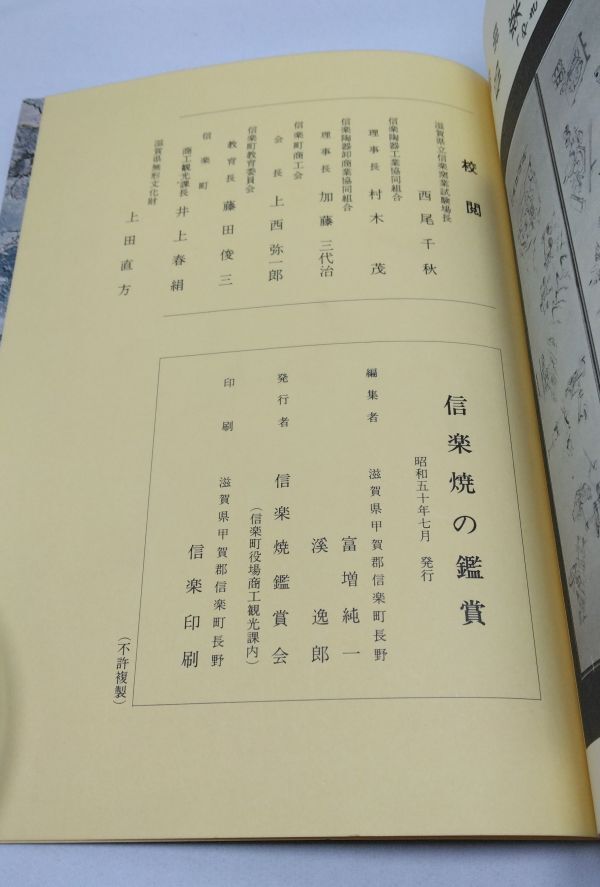 校閲
滋賀県立信楽窯業試験場長
西尾千秋
信楽陶器工業協同組合
理事長 村木茂
信楽陶器卸商業協同組合
理事長 加藤三代治
信楽町商工会
会長 上西弥一郎
信楽町教育委員会
教育長 藤田俊三
信楽町
商工観光課長 井上春絹
滋賀県無形文化財
上田直方
信楽焼の鑑賞
昭和五十年七月 発行
編集者 滋賀県甲賀郡信楽町長野
富増純一
溪逸郎
発行者 信楽焼鑑賞会
(信楽町役場商工観光課内)
印刷 滋賀県甲賀郡信楽町長野
信楽印刷
(不許複製)